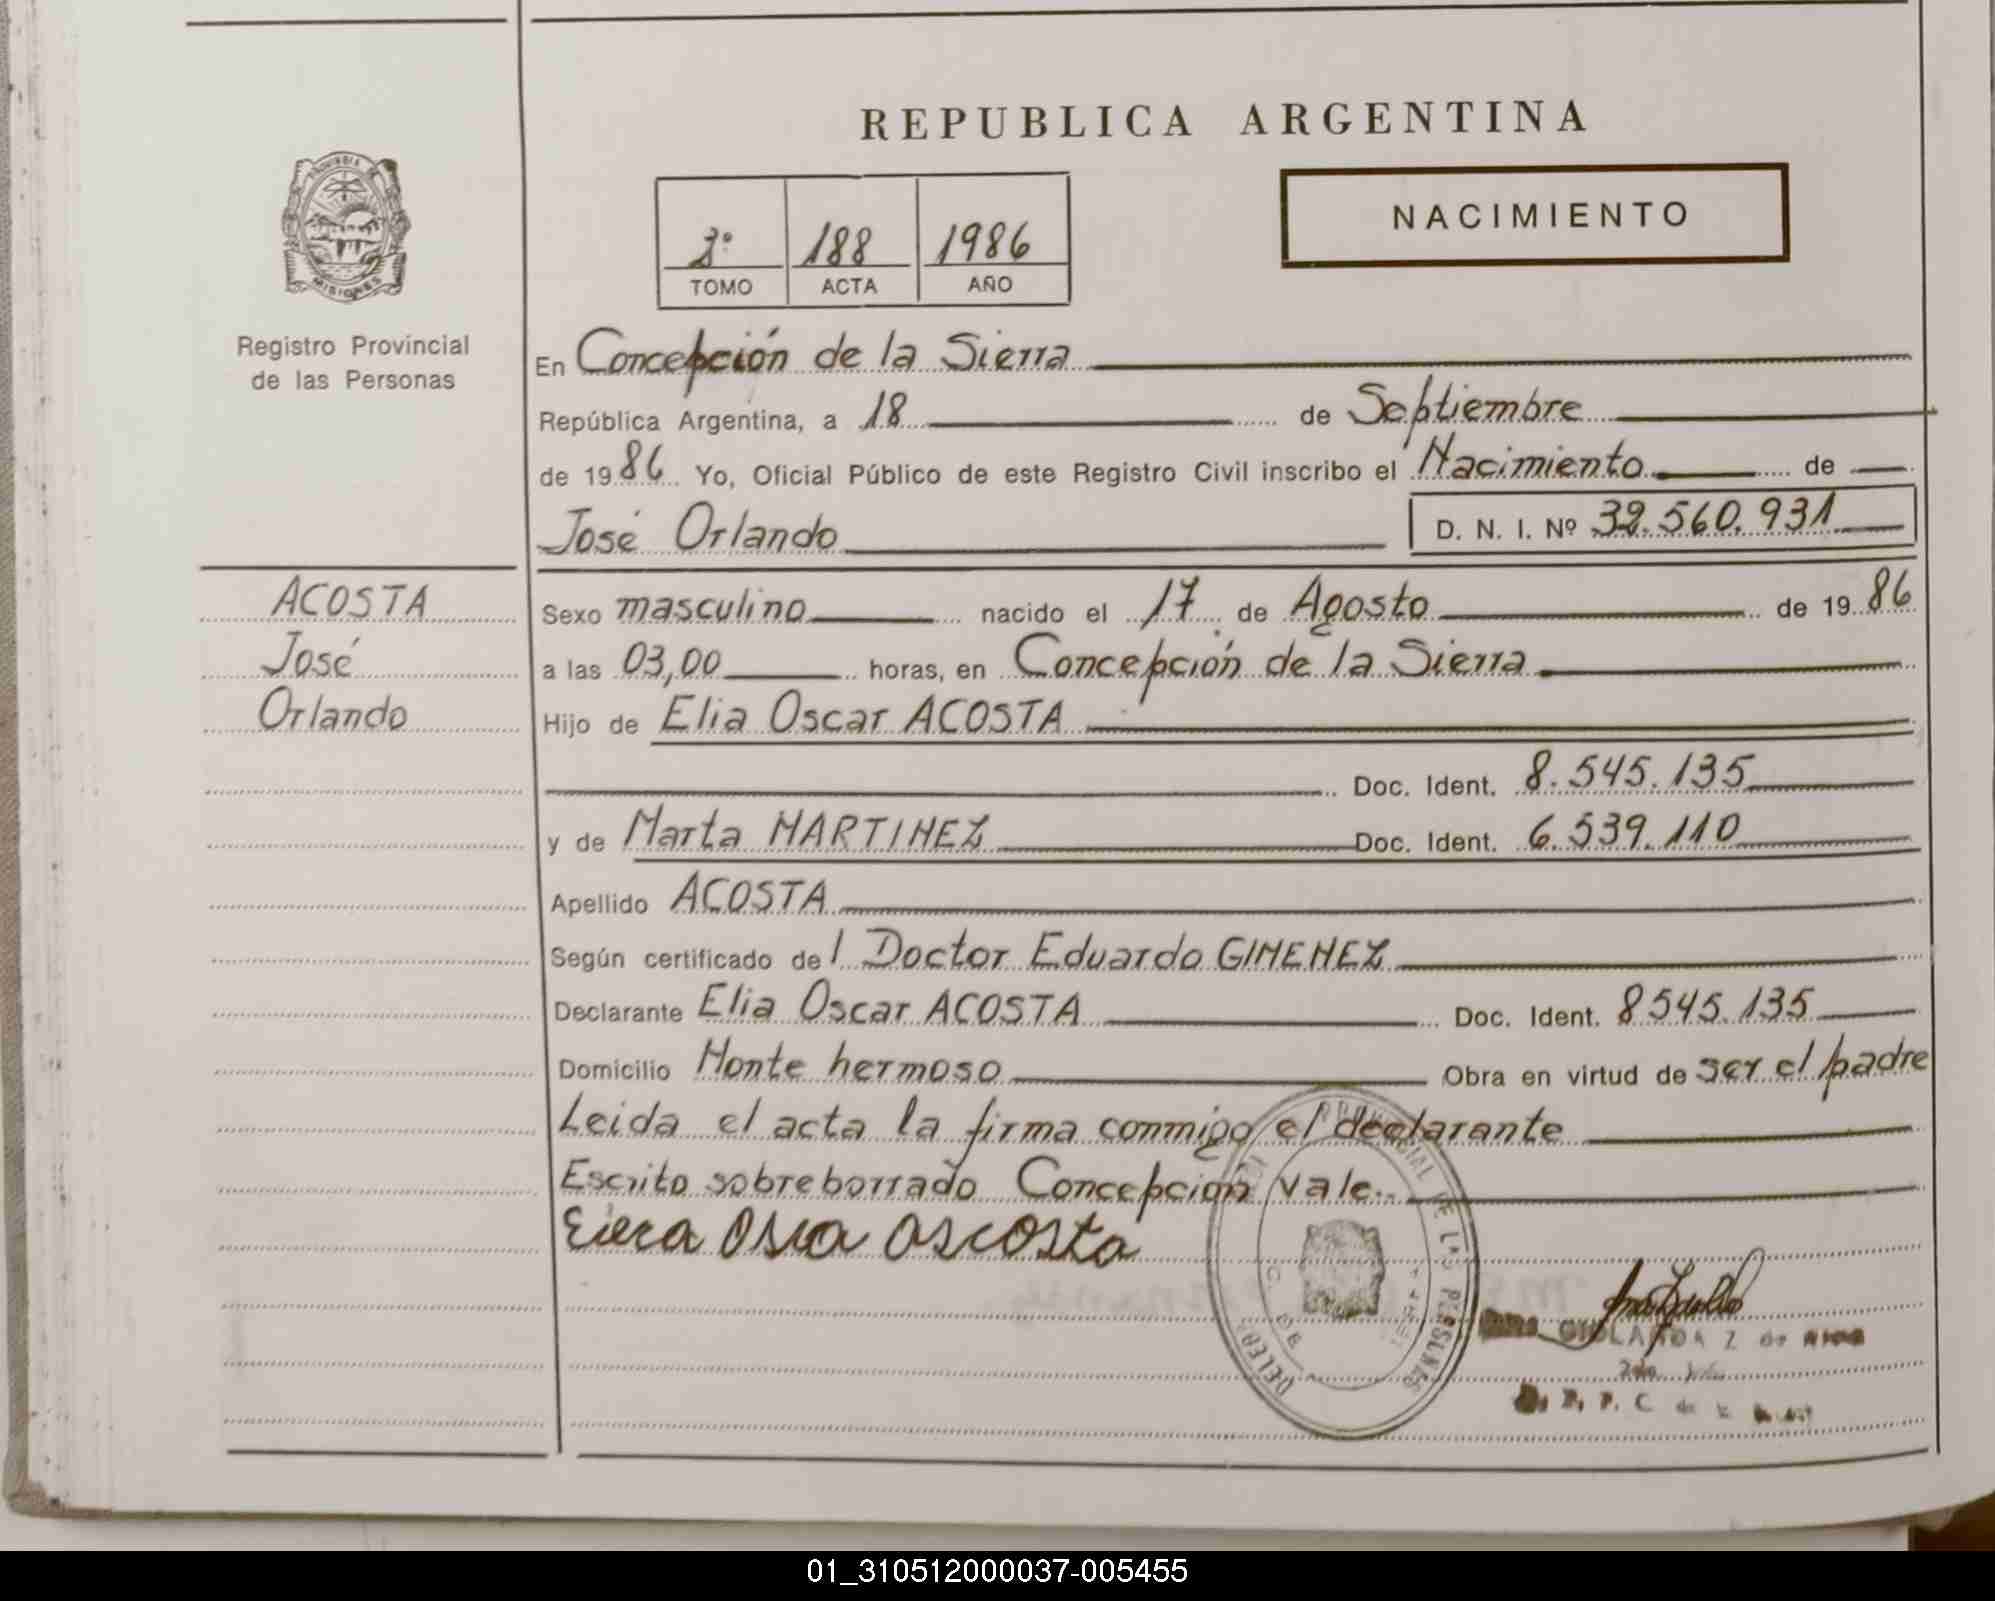 REPUBLICA ARGENTINA
NACIMIENTO
2º 188 1986
TOMO ACTA AÑO
PROVINCIA DE
MISIONES
Registro Provincial
de las Personas
En Concepción de la Sierra
República Argentina, a 18 de Septiembre
de 1986 Yo, Oficial Público de este Registro Civil inscribo el Nacimiento de
José Orlando D. N. I. Nº 32.560.931
ACOSTA
José
Orlando
Sexo masculino nacido el 17 de Agosto de 1986
a las 03,00 horas, en Concepción de la Sierra
Hijo de Elia Oscar ACOSTA
Doc. Ident. 8.545.135
y de Marta MARTINEZ Doc. Ident. 6.539.110
Apellido ACOSTA
Según certificado del Doctor Eduardo GIMENEZ
Declarante Elia Oscar ACOSTA Doc. Ident. 8545.135
Domicilio Monte hermoso Obra en virtud de ser el padre
Leida el acta la firma conmigo el declarante
Escrito sobreborrado Concepción Vale.
PROVINCIAL DE LAS PERSONAS
01_310512000037-005455